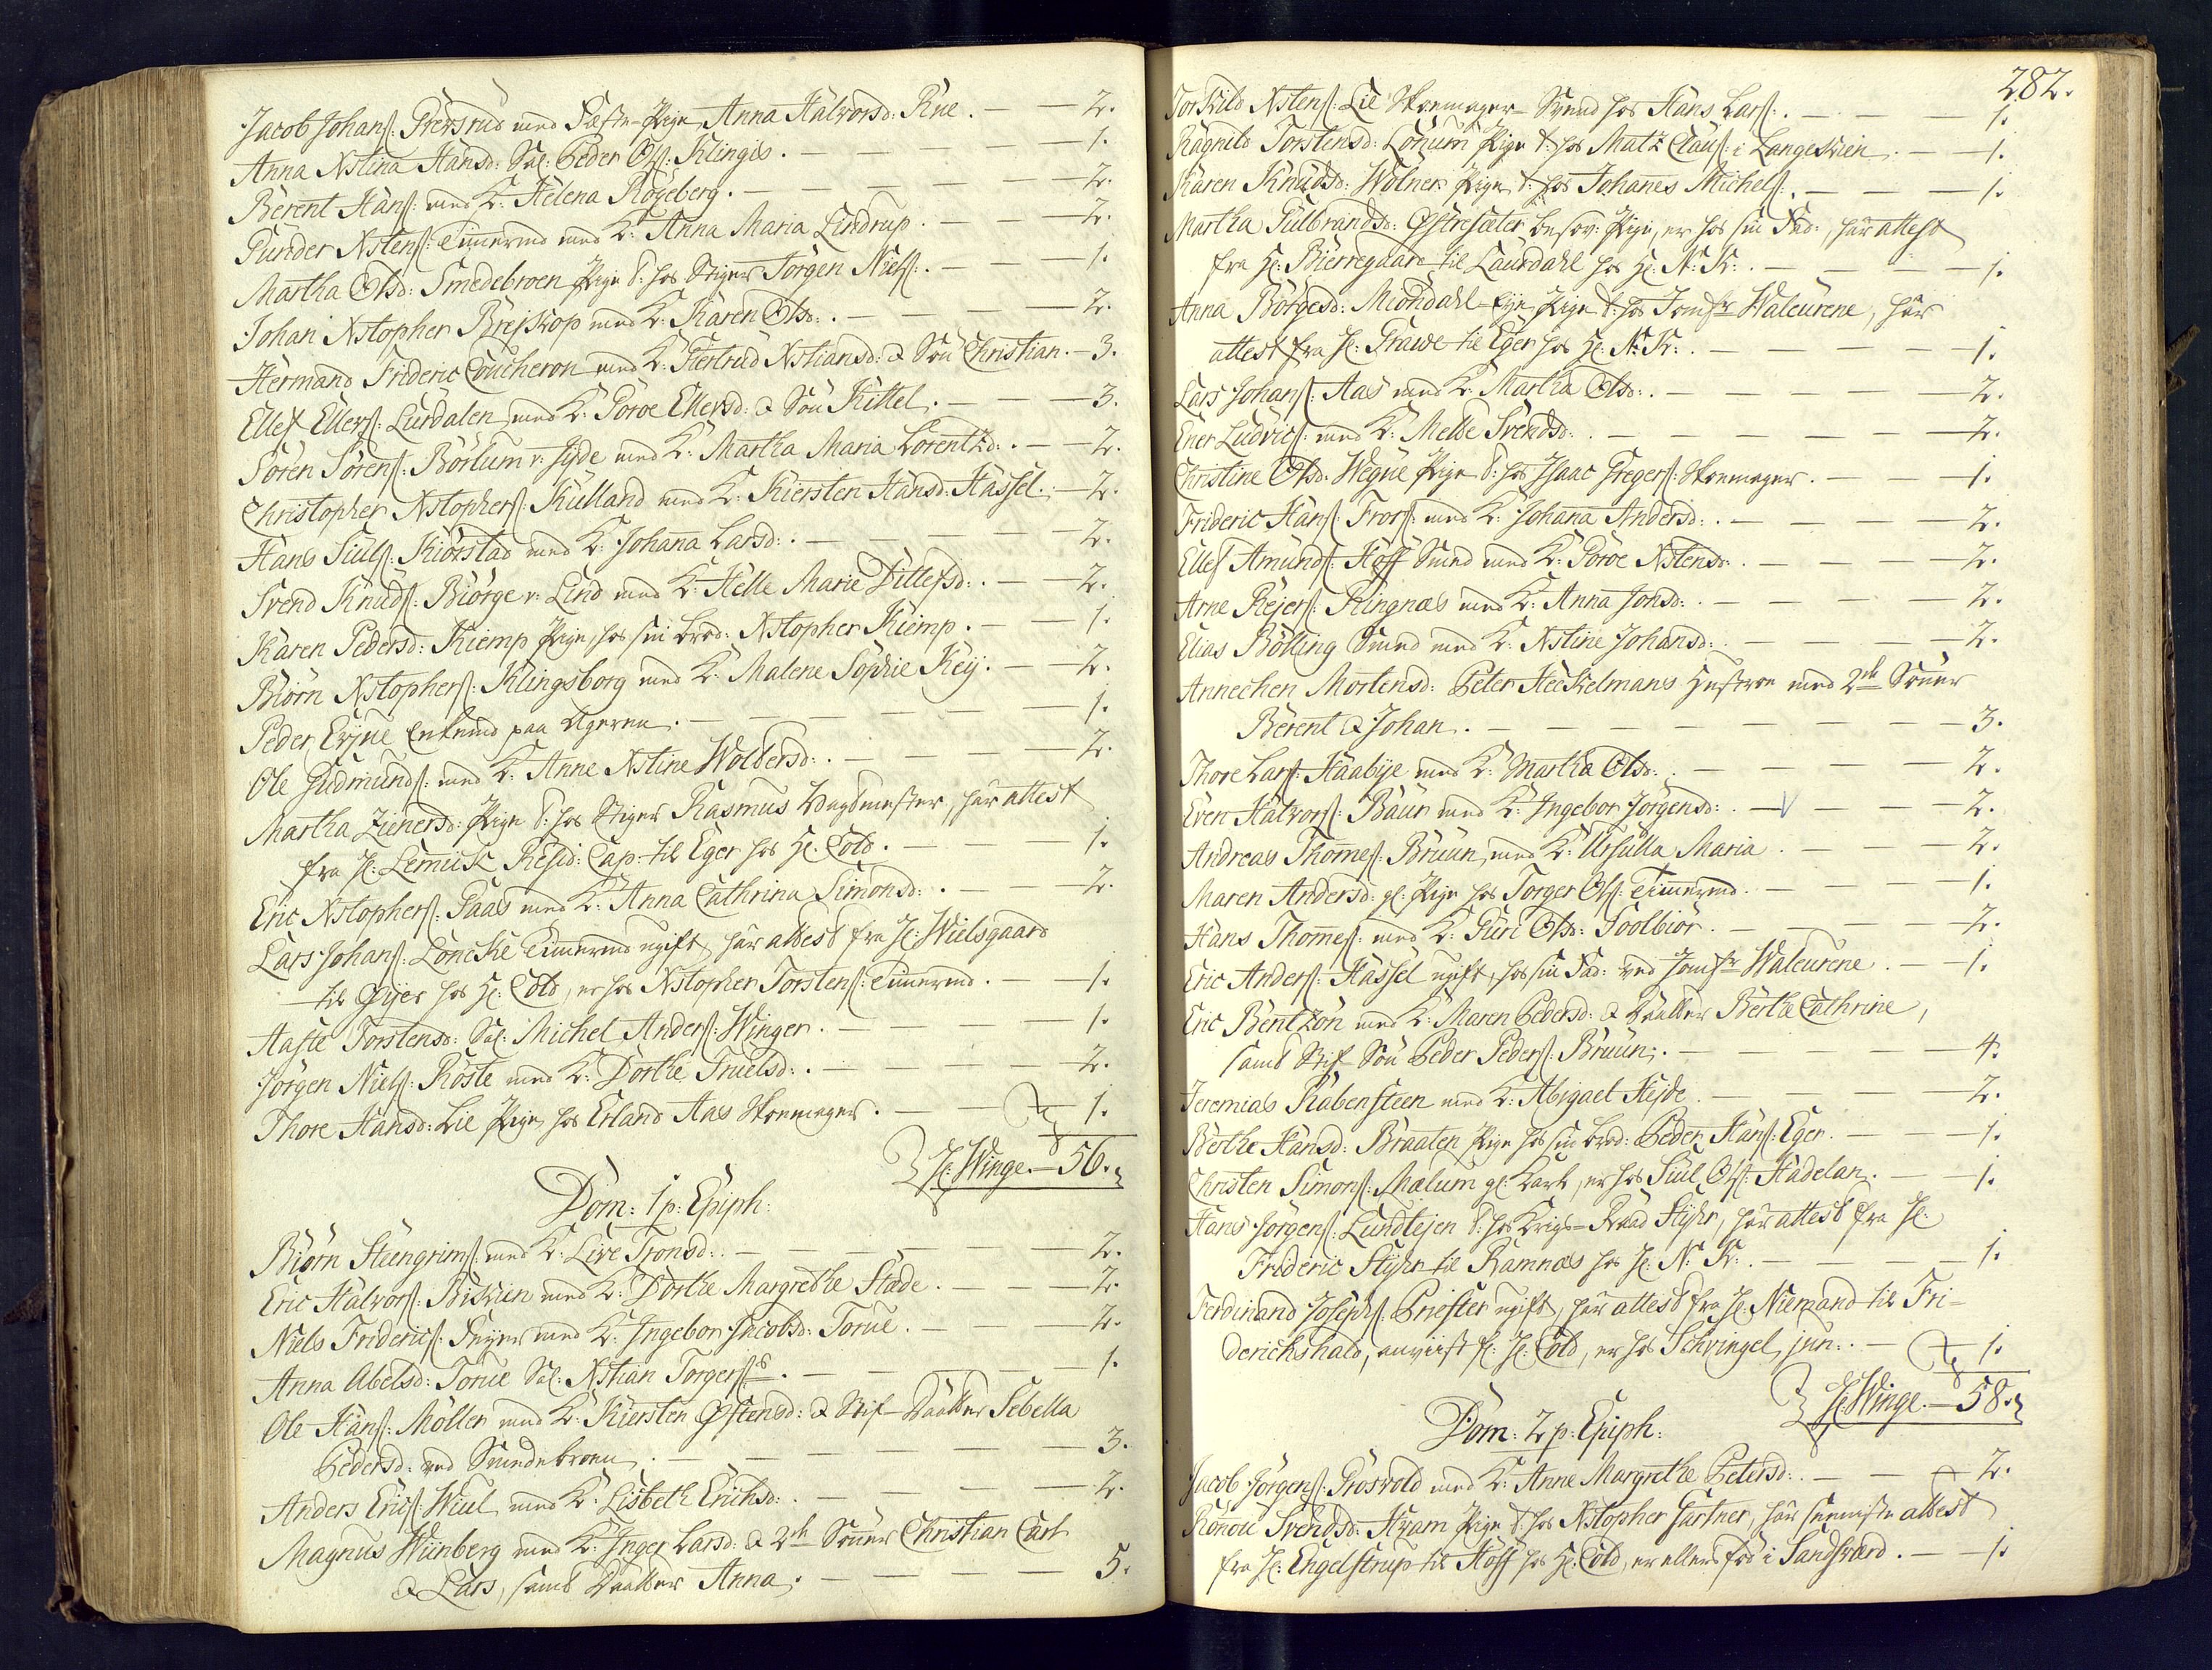 Jacob Johanſ: Grersrud med Fæste-Pige Anna Halvorsd: Rue. — — 2.
Anna Xstina Hansd: Sal: Peder Olſ: Klingis. — — — — — 1.
Berent Hanſ: med K: Helena Rögeberg. — — — — — — 2.
Gunder Xstenſ: Timermd med K: Anna Maria Lindrup. — — — 2.
Martha Olsd: Smedebroen Pige t: hos Stiger Jörgen Nielſ:. — — — 1.
Johan Xstopher Brejskop med K: Karen Olsd:. — — — — 2.
Hermand Frideric Coucheron med K: Giertrud Xstiansd: & Sön Christian. — 3.
Ellef Ellefſ: Lurdalen med K: Goroe Ellevsd: & Sön Kittel. — — — 3.
Sören Sörenſ: Börlum v: Hyde med K: Martha Maria Lorentzd:. — — 2.
Christopher Xstopherſ: Kulland med K: Kiersten Hansd: Hassel. — 2.
Hans Siulſ: Kiörstad med K: Johana Larsd:. — — — — 2.
Svend Knudſ: Biörge v: Lind med K: Helle Marie Ditlefsd:. — — 2.
Karen Pedersd: Kiemp Pige, hos sin brod: Xstopher Kiemp. — — 1.
Biörn Xstopherſ: Klingsborg med K: Malene Sophie Keij. — — 2.
Peder Erjue Enkemd paa Ageren. — — — — — — 1.
Ole Gudmundſ: med K: Anne Xstine Woldersd:. — — — 2.
Martha Zienersd: Pige t: hos Stiger Rasmus Vagdmester, har attest
fra H: Lemiick Resid: Cap: til Eger hos H: Cold. — — — — 1.
Eric Xstopherſ: Gaas med K: Anna Cathrina Simonsd:. — — — 2.
Lars Johanſ: Löncke Timermd ugift, har attest fra H: Wielsgaard
til Öyer hos H: Cold, er hos Xstopher Torstenſ: Timermd. — — 1.
Aaste Torstensd: Sal: Michel Anderſ: Winger. — — — — 1.
Jörgen Nielſ: Röste med K: Dorthe Truelsd:. — — — — 2.
Thore Hansd: Lie Pige, hos Erland Aas Skoemager. — — — 1.
H: Winge. — 56.
Dom: 1 p: Epiph:
Biörn Steengrimſ: med K: Live Tronsd:. — — — — — 2.
Eric Halvorſ: Biskien med K: Dorthe Margrethe Stade. — — — 2.
Niels Fridericſ: Snyer med K: Ingebor Jacobsd: Torue. — — — 2.
Anna Abelsd: Torue Sal: Xstian Torgerſ:. — — — — 1.
Ole Hanſ: Möller med K: Kiersten Östensd: & Stif-Daatter Sebella
Pedersd: ved Smedebroen. — — — — — — 3.
Anders Ericſ: Wiul med K: Lisbeth Erichsd:. — — — — 2.
Magnus Wiinberg med K: Inger Larsd: & 2de Sönner Christian Carl
& Lars, samt Daatter Anna. — — — — — 5.
282.
Torkild Xstenſ: Lie Skoemager-Svend hos Hans Larſ:. — — — 1.
Ragnild Torstensd: Lonum Pige t: hos Matz Clauſ: i Langeskien. — — 1.
Karen Knudsd: Wolner Pige t: hos Johanes Michelſ:. — — — 1.
Martha Gulbrandsd: Östresæter besov: Pige, er hos sin Fad:, har attest
fra H: Bierregaard til Laurdahl hos H: N: K:. — — — — 1.
Anna Börgesd: Miöndahl-Eje Pige t: hos Jomfr Waleurene, har
attest fra H: Grawe til Eger hos H: N: K:. — — — — — 1.
Lars Johanſ: Aas med K: Martha Olsd:. — — — — — 2.
Ener Ludvicſ: med K: Melde Svendsd:. — — — — — — 2.
Christine Olsd: Wegue Pige t: hos Isaac Gregerſ: Skoemager. — — — 1.
Frideric Hanſ: Frorſ: med K: Johana Andersd:. — — — — 2.
Ellef Amundſ: Hoff Smed med K: Goroe Xstensd:. — — — — 2.
Arne Rejerſ: Ringnæs med K: Anna Jonsd:. — — — — 2.
Elias Bölling Smed med K: Xstine Johansd:. — — — — 2.
Annechen Mortensd: Peter Heckelmans Hustroe med 2de Sönner
Berent & Johan. — — — — — — — — 3.
Thore Larſ: Haabye med K: Martha Olsd:. — — — — 2.
Even Halvorſ: Baur med K: Ingebor Jörgensd:. — — — — 2.
Andreas Thomeſ: Bruun med K: Ursulla Maria. — — — — 2.
Maren Andersd: gl: Pige hos Torger Olſ: Timermd. — — — — 1.
Hans Thomeſ: med K: Guri Olsd: Soolbiör. — — — — 2.
Eric Anderſ: Hassel ugift, hos sin Fad: ved Jomfr Waleurene. — — 1.
Eric Bentzön med K: Maren Pedersd: & Daatter Berthe Cathrine,
samt Stif-Sön Peder Pederſ: Bruun. — — — — — 4.
Jeremias Rabensteen med K: Abigael Hejde. — — — — 2.
Berthe Hansd: Braaten Pige hos sin brod: Peder Hanſ: Eger. — — — 1.
Christen Simonſ: Mælum gl: Karl, er hos Siul Olſ: Hadelan. — — 1.
Hans Jörgenſ: Lundtejen t: hos Krigs-Raad Styhr, har attest fra H:
Frideric Styhr til Ramnæs hos H: N: K:. — — — — 1.
Ferdinand Josephſ: Priester ugift, har attest fra H: Niemand til Fri-
derichshald, anviist fl: H: Cold, er hos Schvingel, jun:. — — 1.
H: Winge. — 58.
Dom: 2 p: Epiph:
Jacob Jörgenſ: Grosvold med K: Anne Margrethe Petersd:. — — — 2.
Rönou Svendsd: Hvam Pige t: hos Xstopher Gartner, har attest
fra H: Engelstrup til Hoff hos H: Cold, er ellers fød i Sandsværd. — — 1.